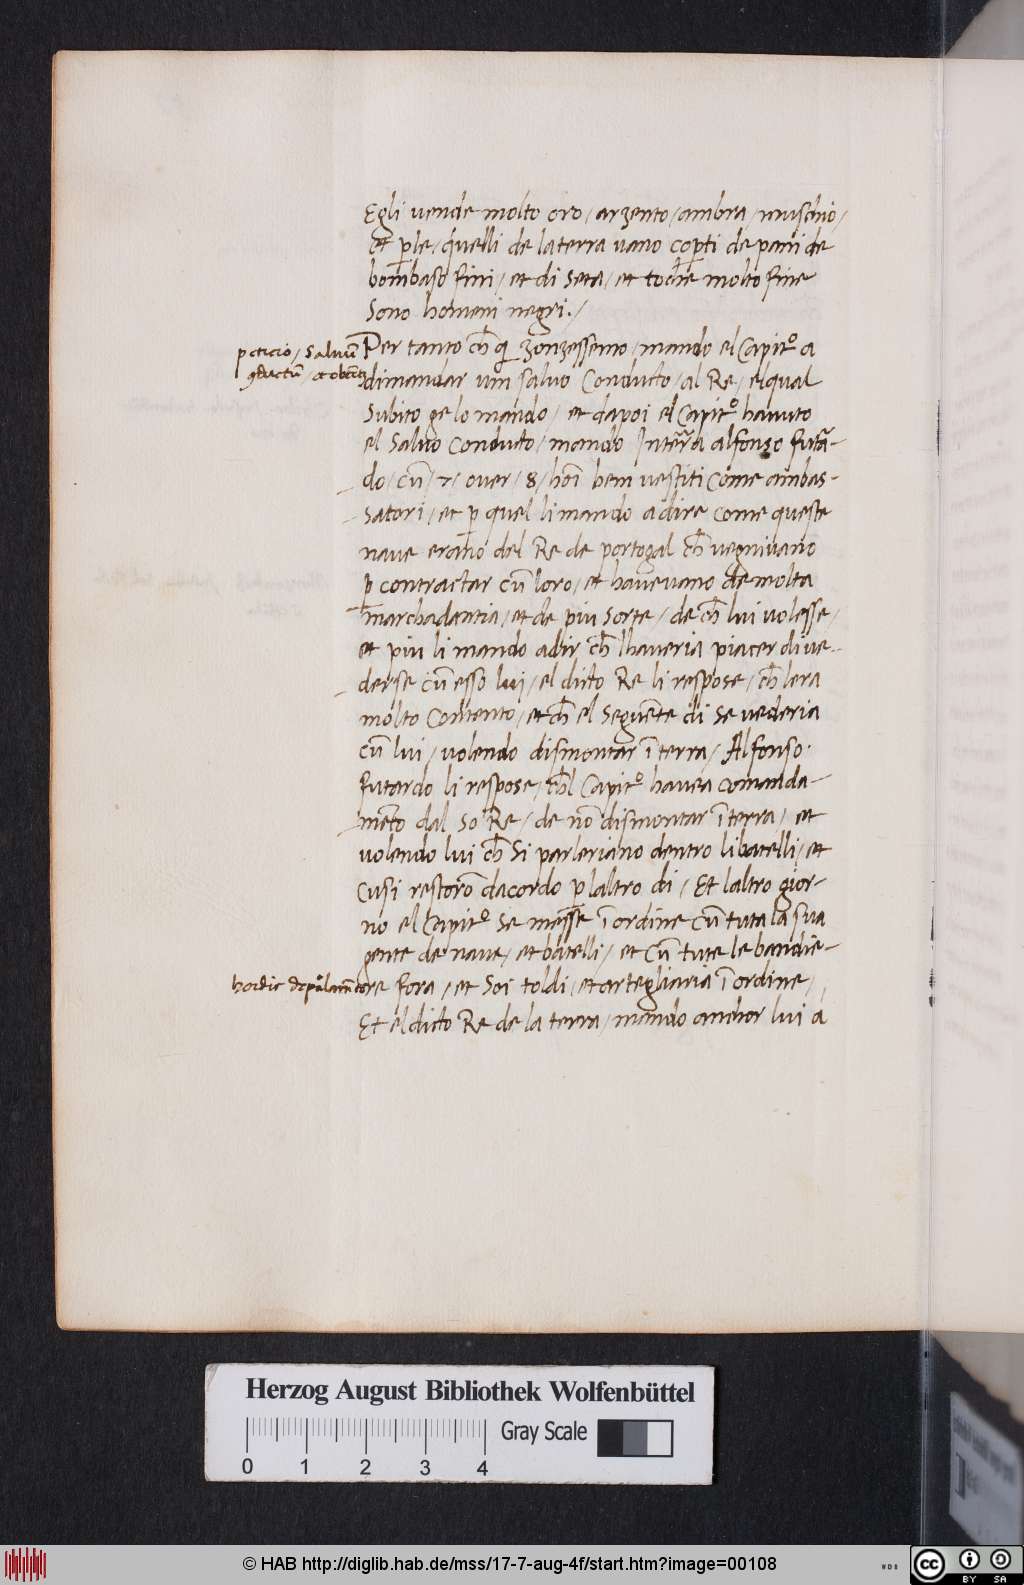 Egli vende molto oro / arzento / ambra / muschio /
et ple / quelli de la terra vano copti de pani de
bombaso fini / et di seta / et toche molto fine
Sono homeni negri. /
peticio / Salvū
Per tanto ch̄ qi zonzessemo / mando el Capitº a
ꝯductū / et obtēta
dimandar um salvo Conducto / al Re / elqual
Subito ge lo mando / et dapoi el Capitº havuto
el Salvo conducto / mando Interra alfonso furta-
do / cū / 7 / over / 8 / hoī bem vestiti come ambas-
satori / et p̱ quel li mando a dire come queste
nave erano del Re de portogal ch̄ vegnivano
p̱ contractar cū loro / et havevano de molta
marchadantia / et de piu sorte / de ch̄ lui volesse /
et piu li mando a dir ch̄ lhaveria piacer di ve-
derse cū esso lui / el dicto Re li respose / ch̄ lera
molto Contento / et ch̄ el seguēte di se vederia
cū lui / volendo dismontar ī terra / Alfonso
furtado li respose / ch̄l Capitº havea comanda-
mēto dal so Re / de nō dismontar ī terra / et
volendo lui ch̄ Si parleriano dentro li batelli / et
Cusi restorō dacordo p̱ laltro di / Et laltro gior-
no el Capitº se messe ī ordine cū tuta la sua
gente de nave / et batelli / et Cū tute le bandie-
re fora / et Soi toldi / et artegliaria ī ordine /
Et el dicto Re de la terra / mando anchor lui a
Herzog August Bibliothek Wolfenbüttel
Gray Scale
0 1 2 3 4
© HAB http://diglib.hab.de/mss/17-7-aug-4f/start.htm?image=00108
WDB
cc BY SA